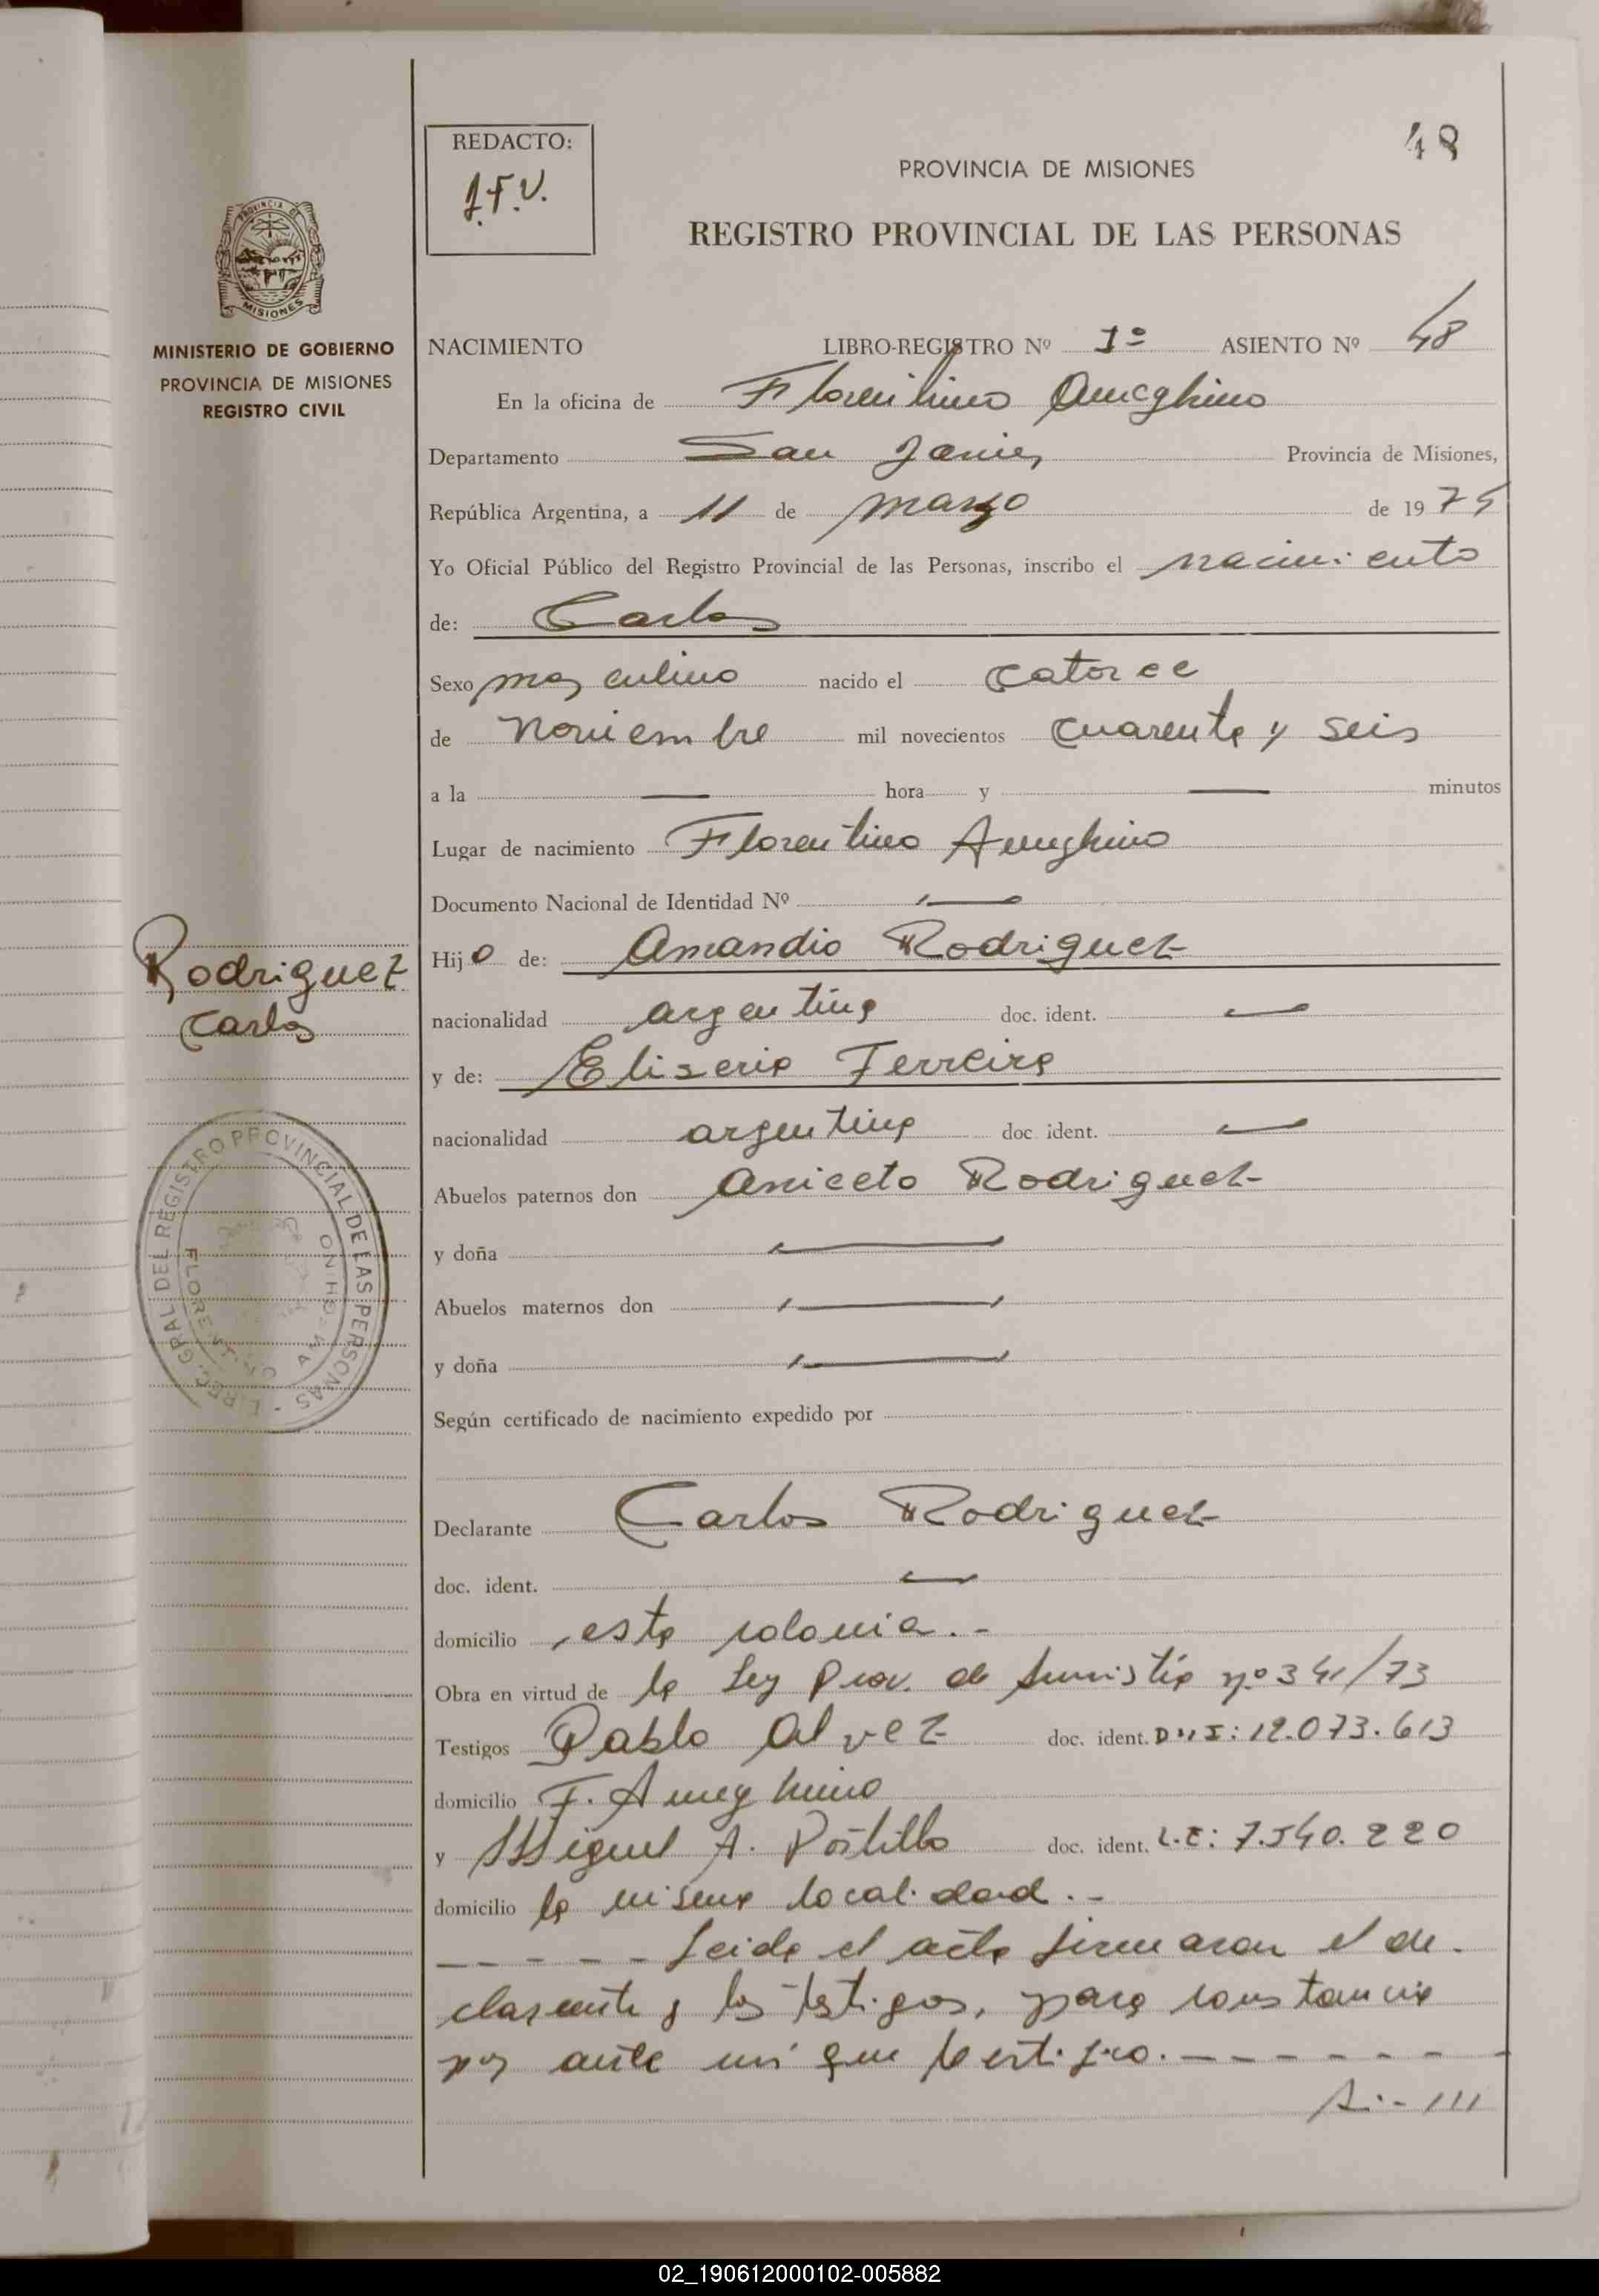 48
REDACTO:
J.F.V.
PROVINCIA DE MISIONES
REGISTRO PROVINCIAL DE LAS PERSONAS
MINISTERIO DE GOBIERNO
PROVINCIA DE MISIONES
REGISTRO CIVIL
NACIMIENTO LIBRO-REGISTRO Nº 1º ASIENTO Nº 48
En la oficina de Florentino Ameghino
Departamento San Javier Provincia de Misiones,
República Argentina, a 11 de marzo de 1975
Yo Oficial Público del Registro Provincial de las Personas, inscribo el nacimiento
de: Carlos
Sexo masculino nacido el catorce
de noviembre mil novecientos cuarenta y seis
a la — hora y — minutos
Lugar de nacimiento Florentino Ameghino
Documento Nacional de Identidad Nº —
Rodriguez
Carlos
Hijo de: Amandio Rodriguez
nacionalidad argentina doc. ident. —
y de: Eliseria Ferreira
nacionalidad argentina doc. ident. —
Abuelos paternos don Aniceto Rodriguez
y doña —
Abuelos maternos don —
y doña —
REGISTRO PROVINCIAL DE LAS PERSONAS
FLORENTINO AMEGHINO
Según certificado de nacimiento expedido por
Declarante Carlos Rodriguez
doc. ident. —
domicilio esta colonia.-
Obra en virtud de la Ley Prov. de Amnistía nº 341/73
Testigos Pablo Alvez doc. ident. DNI: 12.073.613
domicilio F. Ameghino
y Miguel A. Portillo doc. ident. L.E: 7.540.220
domicilio la misma localidad.-
- - - - - Leida el acta firmaron el de-
clarante y los testigos, para constancia
por ante mi que certifico. - - - - - -
///
02_190612000102-005882